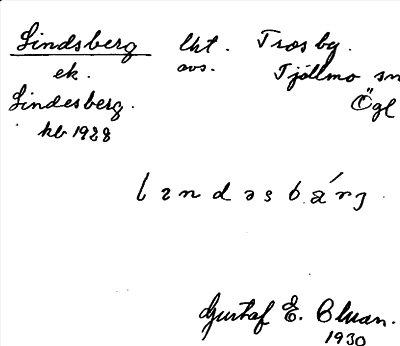 Lindsberg lht. Trosby.
ek. avs. Tjällmo sn
Lindesberg. Ögl
kb 1928
Gustaf E. Cluan.
1930